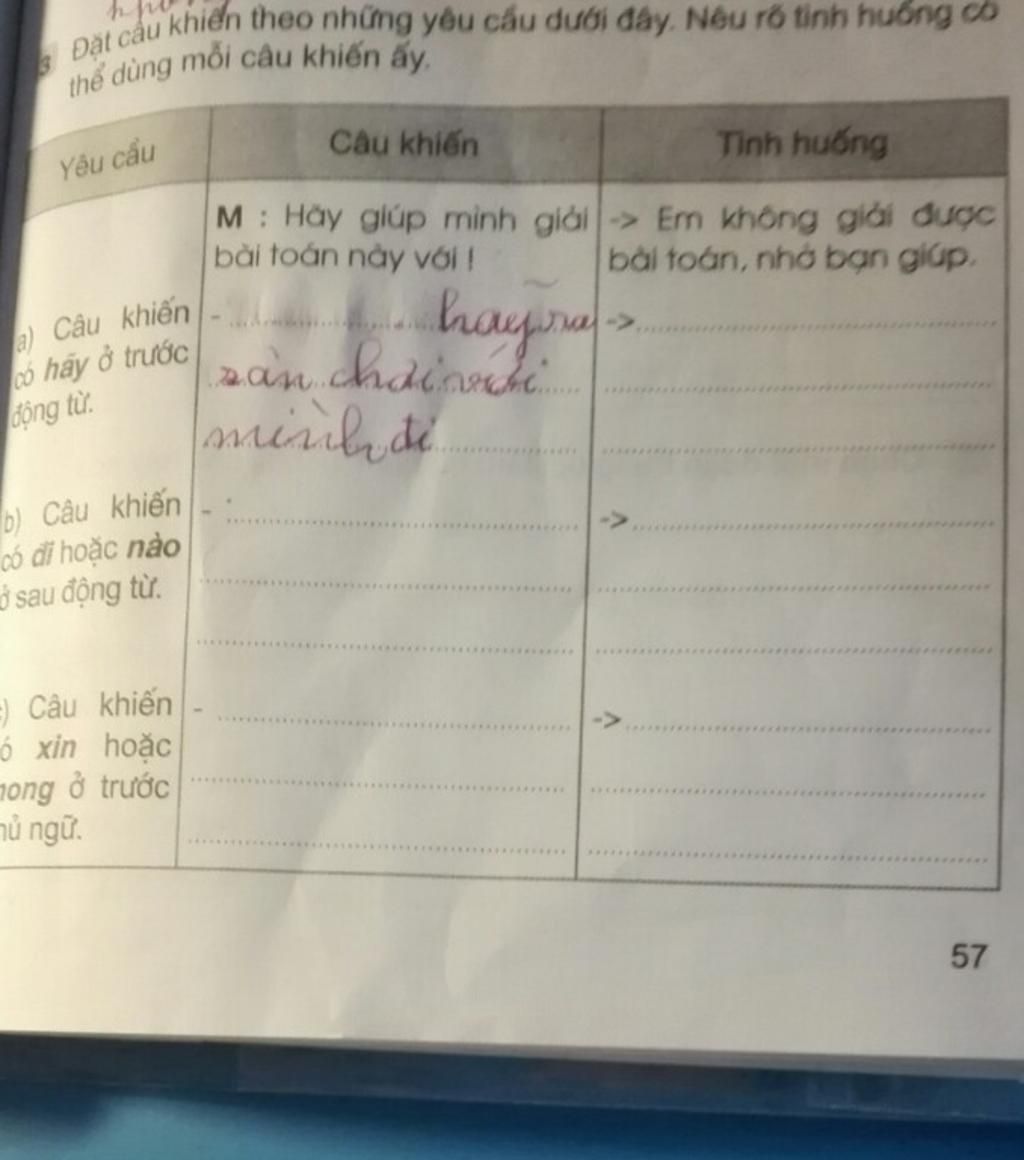 3 Đặt câu khiến theo những yêu cầu dưới đây. Nêu rõ tình huống có
thể dùng mỗi câu khiến ấy.
Yêu cầu
Câu khiến
Tình huống
M : Hãy giúp mình giải
bài toán này với !
-> Em không giải được
bài toán, nhờ bạn giúp.
a) Câu khiến
có hãy ở trước
động từ.
- hãy ra
sàn chơi với
mình đi
->
b) Câu khiến
có đi hoặc nào
ở sau động từ.
-
->
) Câu khiến
ó xin hoặc
ong ở trước
ủ ngữ.
-
->
57